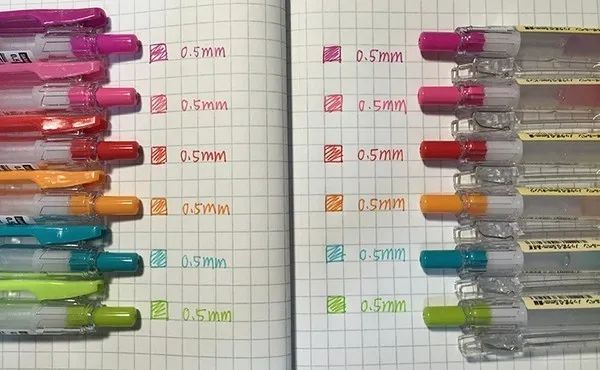 0.5mm 0.5mm
0.5mm 0.5mm
0.5mm 0.5mm
0.5mm 0.5mm
0.5mm 0.5mm
0.5mm 0.5mm